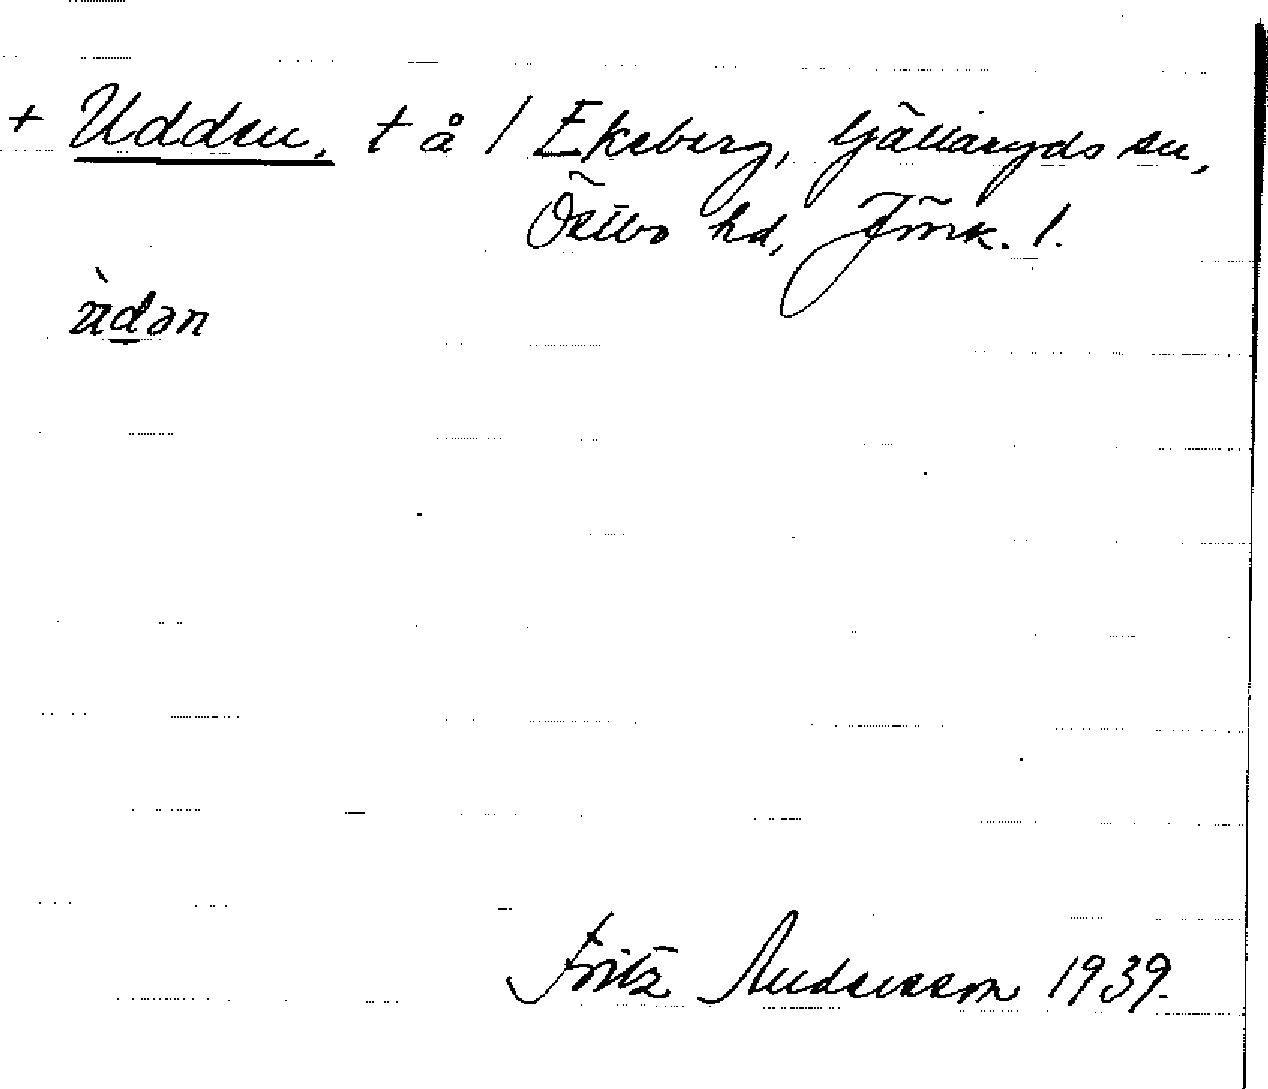 + Udden, t å / Ekeberg, Gällaryds sn,
Östbo hd, Jönk. l.
ùdən
Fritz Andersson 1939.